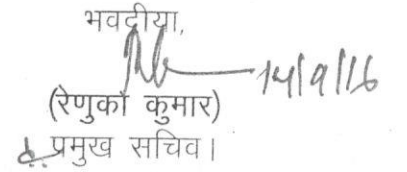 भवदीया,
14/9/16
(रेणुका कुमार)
प्रमुख सचिव।